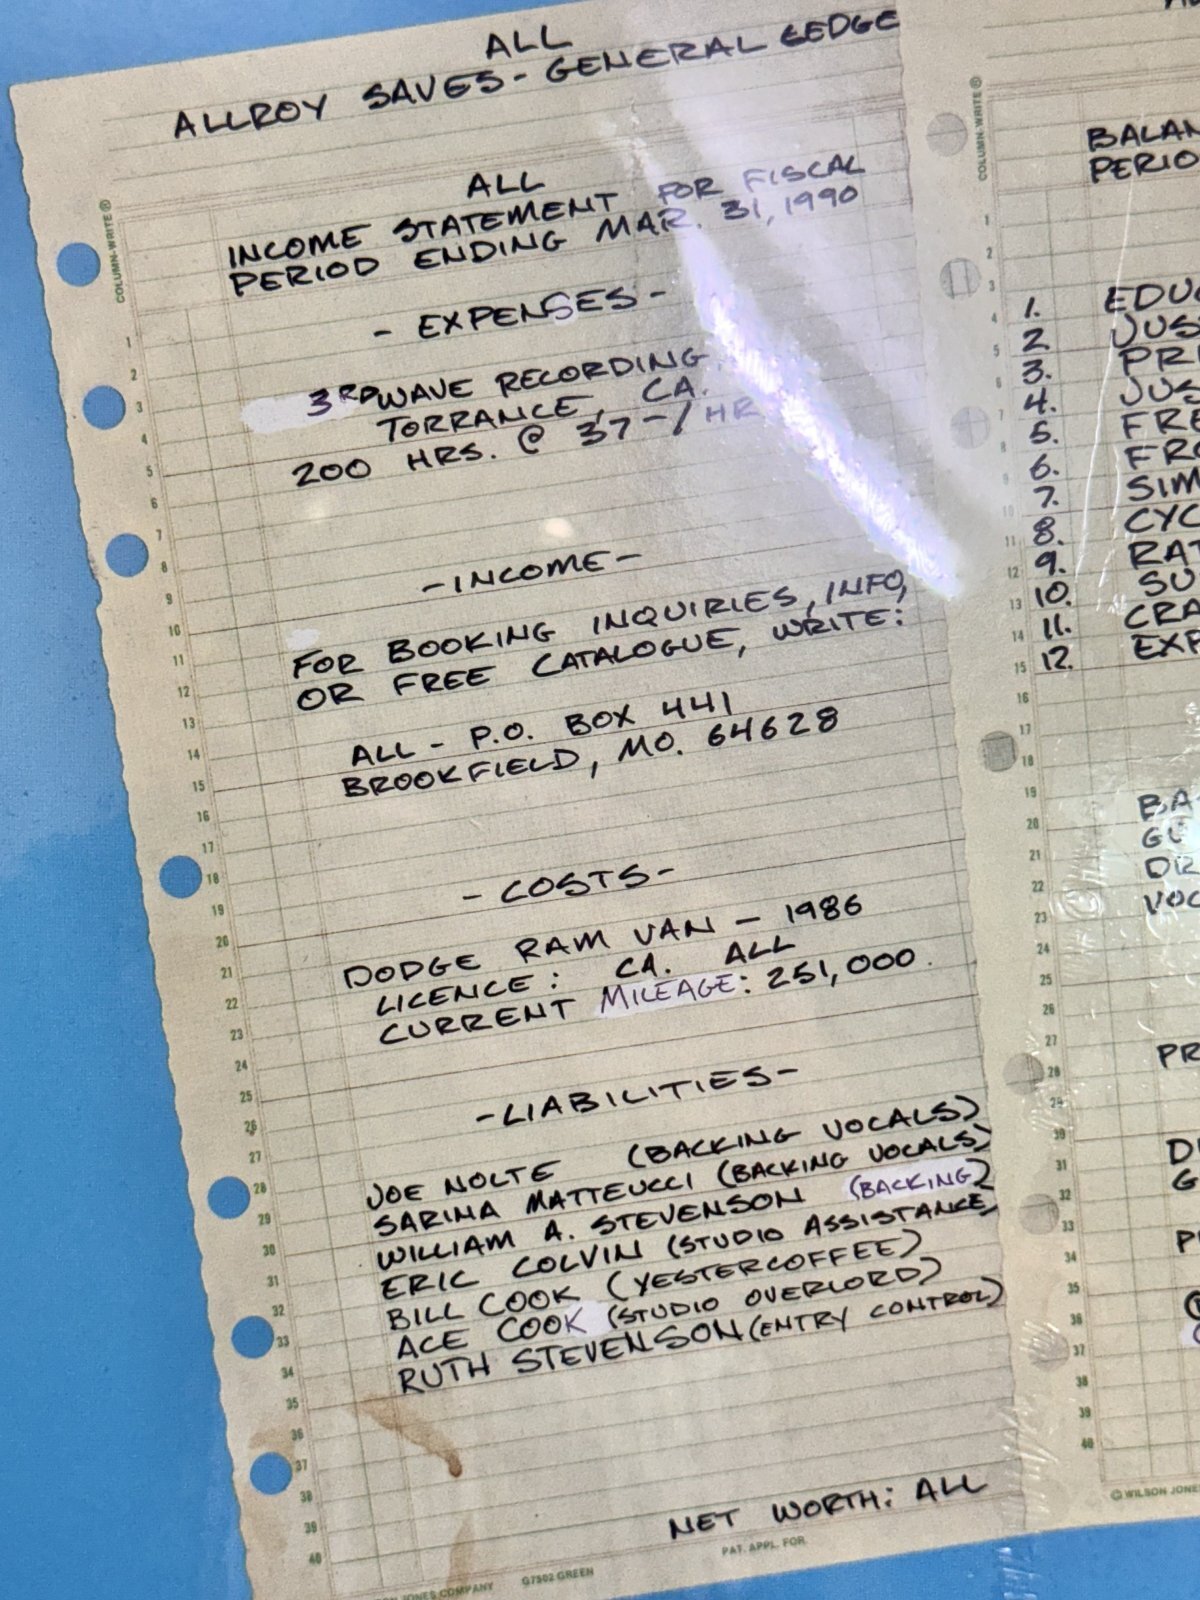 ALL
ALLROY SAVES - GENERAL GEDGE
ALL
INCOME STATEMENT FOR FISCAL
PERIOD ENDING MAR. 31, 1990
- EXPENSES -
3RD WAVE RECORDING
TORRANCE, CA.
200 HRS. @ 37-/HR
- INCOME -
FOR BOOKING INQUIRIES, INFO,
OR FREE CATALOGUE, WRITE:
ALL - P.O. BOX 441
BROOKFIELD, MO. 64628
- COSTS -
DODGE RAM VAN - 1986
LICENCE: CA. ALL
CURRENT MILEAGE: 251,000
- LIABILITIES -
JOE NOLTE (BACKING VOCALS)
SARINA MATTEUCCI (BACKING VOCALS)
WILLIAM A. STEVENSON (BACKING)
ERIC COLVIN (STUDIO ASSISTANCE)
BILL COOK (YESTERCOFFEE)
ACE COOK (STUDIO OVERLORD)
RUTH STEVENSON (ENTRY CONTROL)
NET WORTH: ALL
PAT. APPL. FOR
JONES COMPANY G7502 GREEN
COLUMN-WRITE®
1
2
3
4
5
6
7
8
9
10
11
12
13
14
15
16
17
18
19
20
21
22
23
24
25
26
27
28
29
30
31
32
33
34
35
36
37
38
39
40
COLUMN-WRITE®
BALAN
PERIO
1. EDU
2. JUS
3. PRI
4. JUS
5. FRE
6. FRO
7. SIM
8. CYC
9. RAT
10. SU
11. CRA
12. EXP
BA
GU
DR
VOC
PR
D
G
P
© WILSON JONES